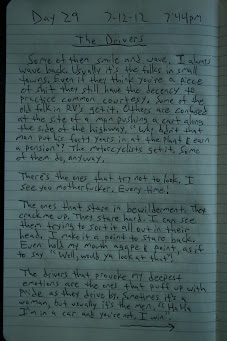 Day 29 7-12-12 7:44pm
The Drivers
Some of them smile and wave. I always
wave back. Usually it's the folks in small
towns. Even if they think you're a piece
of shit they still have the decency to
practice common courtesy. Some of the
old folk in RV's get it. Others are confused
at the site of a man pushing a cart along
the side of the highway. "Why didn't that
man put in forty years in at the plant & earn
a pension"? The motorcyclists get it. Some
of them do, anyway.
There's the ones that try not to look. I
see you motherfucker. Every time!
The ones that stare in bewilderment. They
crack me up. They stare hard. I can see
them trying to sort it all out in their
head. I make it a point to stare back.
Even hold my mouth agape & point, as if
to say "Well, would ya look at that"!
The drivers that provoke my deepest
emotions are the ones that puff up with
pride as they drive by. Sometimes it's a
woman, but usually it's the men. "HaHa
I'm in a car and you're not, I win"